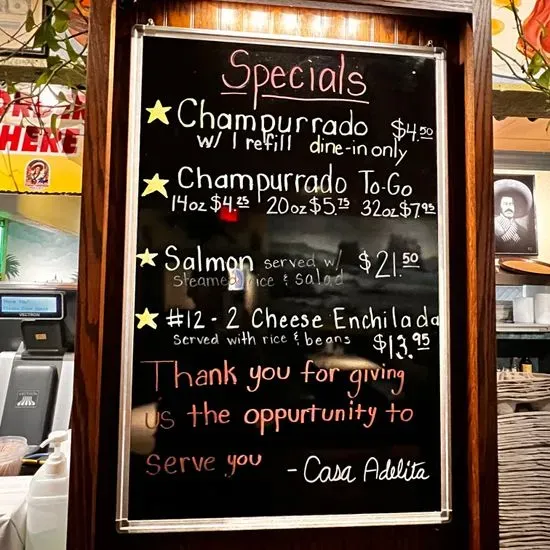 ORDER
HERE
Specials
Champurrado $4.50
w/ 1 refill dine-in only
Champurrado To-Go
14oz $4.25 20oz $5.75 32oz $7.95
Salmon served w/ $21.50
steamed rice & salad
#12 - 2 Cheese Enchilada
Served with rice & beans $13.95
Thank you for giving
us the oppurtunity to
serve you - Casa Adelita
VECTRON